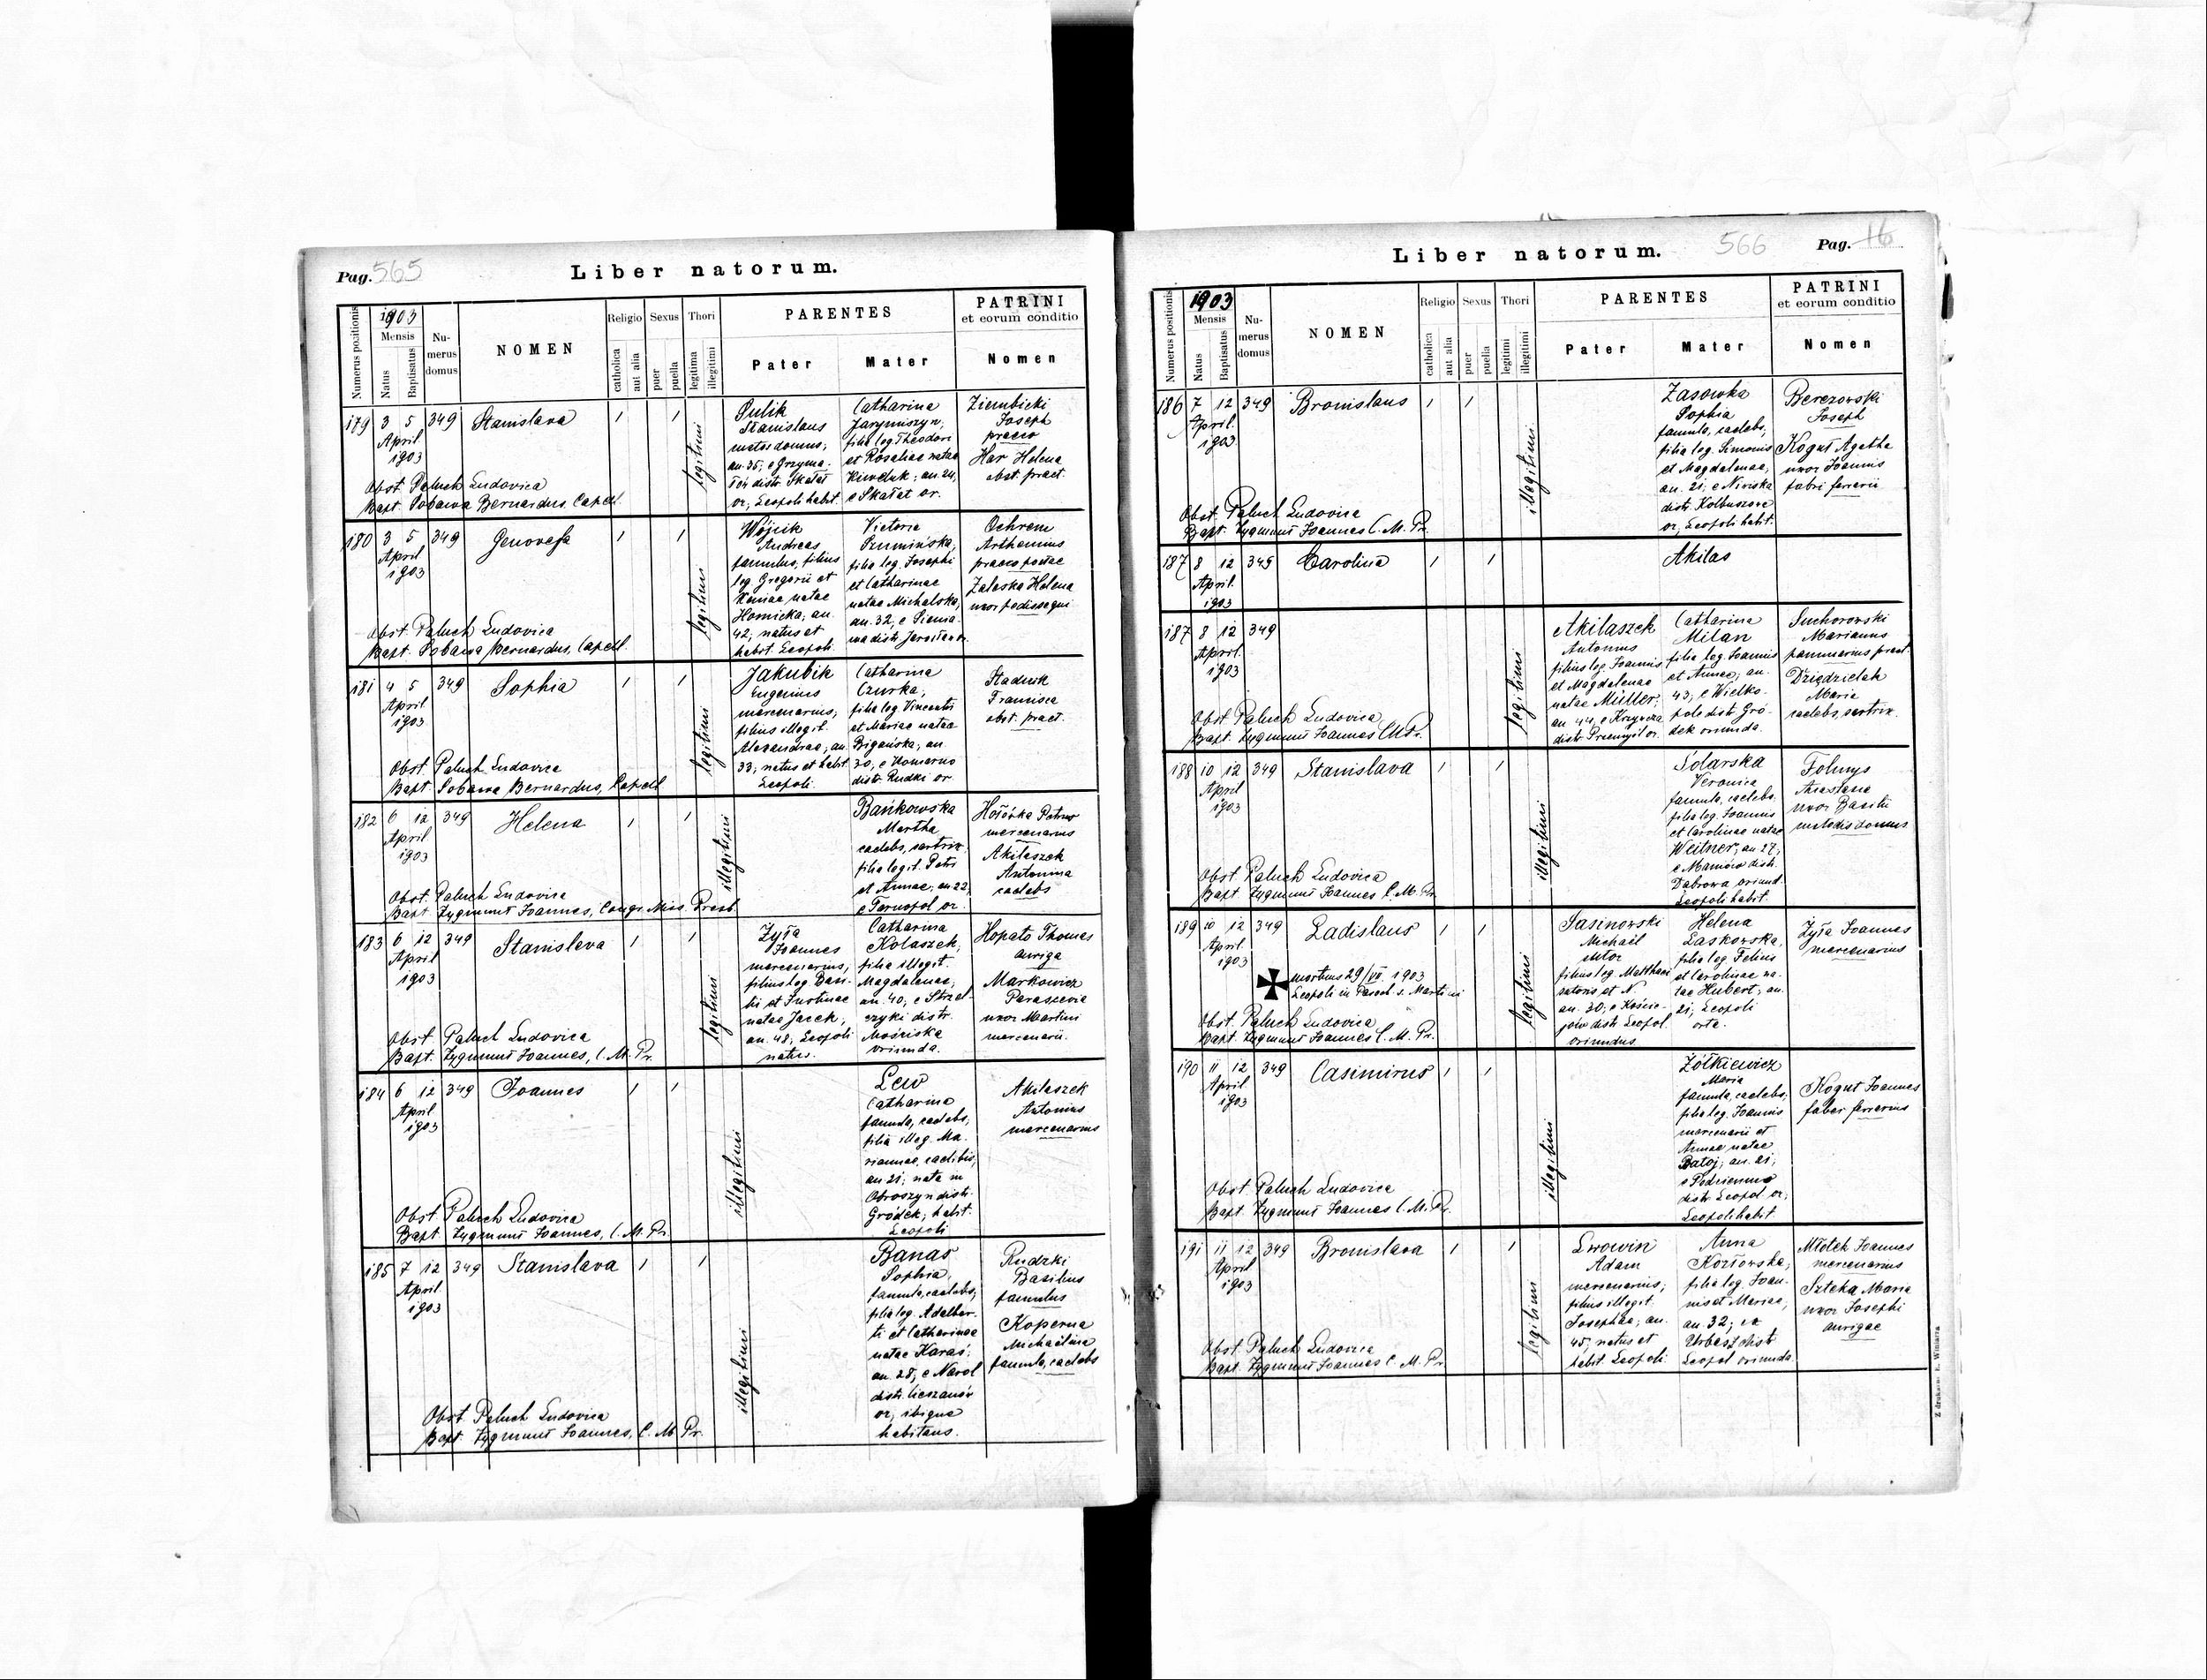 Pag. 565
Liber natorum.
Numerus positionis
1903
Mensis
Natus
Baptisatus
Nu-
merus
domus
NOMEN
Religio
catholica
aut alia
Sexus
puer
puella
Thori
legitima
illegitimi
PARENTES
Pater
Mater
PATRINI
et eorum conditio
Nomen
179 3 5 349 Stanislava 1 1
April
1903
legitimi
Stanislaus
an. 35; e Grzyma-
or, Leopoli habit.
Catharina
filia leg. Theodori
et Rosaliae natae
an. 24,
e Skałat or.
Ziembicki
Joseph
praeco
Har Helena
obst. pract.
Obst. Paluch Ludovica
Bapt. Sobawa Bernardus, Capell.
180 3 5 349 Genovefa 1 1
April
1903
legitimi
Wójcik
Andreas
famulus, filius
leg. Gregorii et
Xeniae natae
Homicka, an.
42; natus et
habit. Leopoli
Victoria
filia leg. Josephi
et Catharinae
natae Michalska,
an. 32, e Sienia-
wa distr. Jarosław or.
Ochrem
Arthemius
Zaleska Helena
uxor pedissequi
Obst. Paluch Ludovica
Bapt. Sobawa Bernardus, Capell.
181 4 5 349 Sophia 1 1
April
1903
legitimi
Jakubik
Eugenius
mercenarius,
filius illegit.
Alexandrae, an.
33; natus et habit.
Leopoli.
Catharina
Czurka,
filia leg. Vincentii
et Mariae natae
Bigańska; an.
30, e Komarno
distr. Rudki or.
Stadnik
Francisca
obst. pract.
Obst. Paluch Ludovica
Bapt. Sobawa Bernardus, Capell.
182 6 12 349 Helena 1 1
April
1903
illegitimi
Bańkowska
Martha
caelebs, sartrix,
filia legit. Petri
et Annae, an 22,
e Tarnopol or.
Hołówka Petrus
mercenarius
Akilaszek
Antonina
caelebs
Obst. Paluch Ludovica
Bapt. Zygmunt Joannes, Congr. Miss. Presb.
183 6 12 349 Stanislava 1 1
April
1903
legitimi
Zyła
Joannes
mercenarius,
filius leg. Basi-
lii et Justinae
natae Jacek,
an. 48, Leopoli
natus.
Catharina
Kolaszek,
filia illegit.
Magdalenae,
an. 40, e Strzel-
czyki distr.
Mościska
oriunda.
Hopato Thomas
auriga
Markowicz
Parascevia
uxor Martini
mercenarii.
Obst. Paluch Ludovica
Bapt. Zygmunt Joannes, C. M. Pr.
184 6 12 349 Joannes 1 1
April
1903
illegitimi
Lew
Catharina
famula, caelebs,
filia illeg. Ma-
riannae, caelibis,
an 21; nata in
Obroszyn distr.
Gródek, habit.
Leopoli
Akilaszek
Antonius
mercenarius
Obst. Paluch Ludovica
Bapt. Zygmunt Joannes, C. M. Pr.
185 7 12 349 Stanislava 1 1
April
1903
illegitimi
Banaś
Sophia,
famula, caelebs,
filia leg. Adalber-
ti et Catharinae
natae Karaś;
an. 28, e Narol
distr. Cieszanów
or., ibique
habitans.
Rudzki
Basilius
famulus
Koperna
Michaëlina
famula, caelebs
Obst. Paluch Ludovica
Bapt. Zygmunt Joannes, C. M. Pr.
Liber natorum.
566
Pag. 16
Numerus positionis
1903
Mensis
Natus
Baptisatus
Nu-
merus
domus
NOMEN
Religio
catholica
aut alia
Sexus
puer
puella
Thori
legitimi
illegitimi
PARENTES
Pater
Mater
PATRINI
et eorum conditio
Nomen
186 7 12 349 Bronislaus 1 1
April.
1903
illegitimi
Zasowka
Sophia
famula, caelebs,
filia leg. Simonis
et Magdalenae,
an. 21; e Niwiska
distr. Kolbuszowa
or, Leopoli habit.
Berezowski
Joseph
Kogut Agatha
uxor Joannis
fabri ferrarii
Obst. Paluch Ludovica
Bapt. Zygmunt Joannes C. M. Pr.
187 8 12 349 Carolina 1 1
April.
1903
Akilas
187 8 12 349
April.
1903
legitimi
Akilaszek
Antonius
filius leg. Joannis
et Magdalenae
natae Müller,
an. 44, e Krzywcza
distr. Przemyśl or.
Catharina
Milan
filia leg. Joannis
et Annae, an.
43, e Wielko-
pole distr. Gró-
dek oriunda.
Suchorowski
Marianus
pannuarius pract.
Dziędzielah
Maria
caelebs, sartrix.
Obst. Paluch Ludovica
Bapt. Zygmunt Joannes C. M. Pr.
188 10 12 349 Stanislava 1 1
April
1903
illegitimi
Solarska
Veronica
famula, caelebs.
filia leg. Joannis
et Carolinae natae
Weitner, an 27,
distr.
Dąbrowa oriund.
Leopoli habit.
Folmys
Anastasia
uxor Basilii
custodis domus
Obst. Paluch Ludovica
Bapt. Zygmunt Joannes C. M. Pr.
189 10 12 349 Ladislaus 1 1
April
1903
mortuus 29/VII. 1903
Leopoli in Paroch. s. Martini
legitimi
Sasinowski
Michaël
filius leg. Matthaei
et N.
an. 30; e Koście-
jów distr. Leopol.
oriundus
Helena
Laskowska,
filia leg. Felicis
et Carolinae na-
tae Hubert; an.
21; Leopoli
orta.
Zyła Joannes
mercenarius
Obst. Paluch Ludovica
Bapt. Zygmunt Joannes C. M. Pr.
190 11 12 349 Casimirus 1 1
April
1903
illegitimi
Żółkiewicz
Maria
famula, caelebs,
filia leg. Joannis
mercenarii et
Annae natae
Batoj; an. 21;
distr. Leopol or,
Leopoli habit.
Kogut Joannes
faber ferrarius
Obst. Paluch Ludovica
Bapt. Zygmunt Joannes C. M. Pr.
191 11 12 349 Bronislava 1 1
April
1903
legitimi
Lwowin
Adam
mercenarius;
filius illegit.
Josephae; an.
45; natus et
habit. Leopoli
Anna
Kozłowska,
filia leg. Joan-
nis et Mariae,
an. 32;
distr.
Leopol oriunda.
Młotek Joannes
mercenarius
Szteka Maria
uxor Josephi
aurigae
Obst. Paluch Ludovica
Bapt. Zygmunt Joannes C. M. Pr.
Z drukarni E. Winiarza